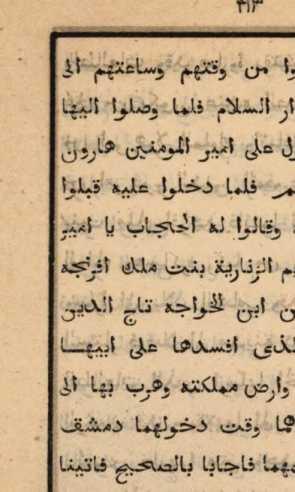 ٣١٣
وا من وقتهم وساعتهم الى
ار السلام فلما وصلوا اليها
ل على امير المومنين هارون
فلما دخلوا عليه قبلوا
وقالوا له الحجاب يا امير
م الزنارية بنت ملك افرنجه
ن ابن الخواجه تاج الدين
لذى افسدها على ابيها
وارض مملكته وهرب بها الى
ما وقت دخولهما دمشق
هما فاجابا بالصحيح فاتينا